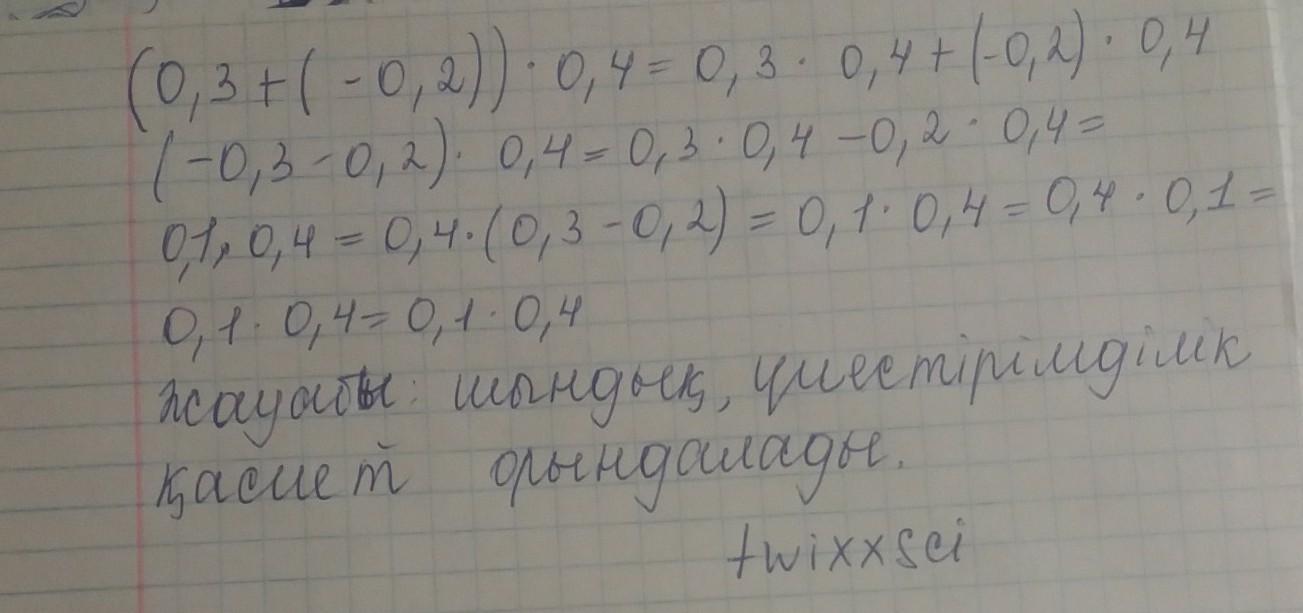 (0,3+(-0,2))·0,4=0,3·0,4+(-0,2)·0,4
(-0,3-0,2)·0,4=0,3·0,4-0,2·0,4=
0,1·0,4=0,4·(0,3-0,2)=0,1·0,4=0,4·0,1=
0,1·0,4=0,1·0,4
жауабы: шындық, үлестірімділік
қасиет орындалады.
twixxsci